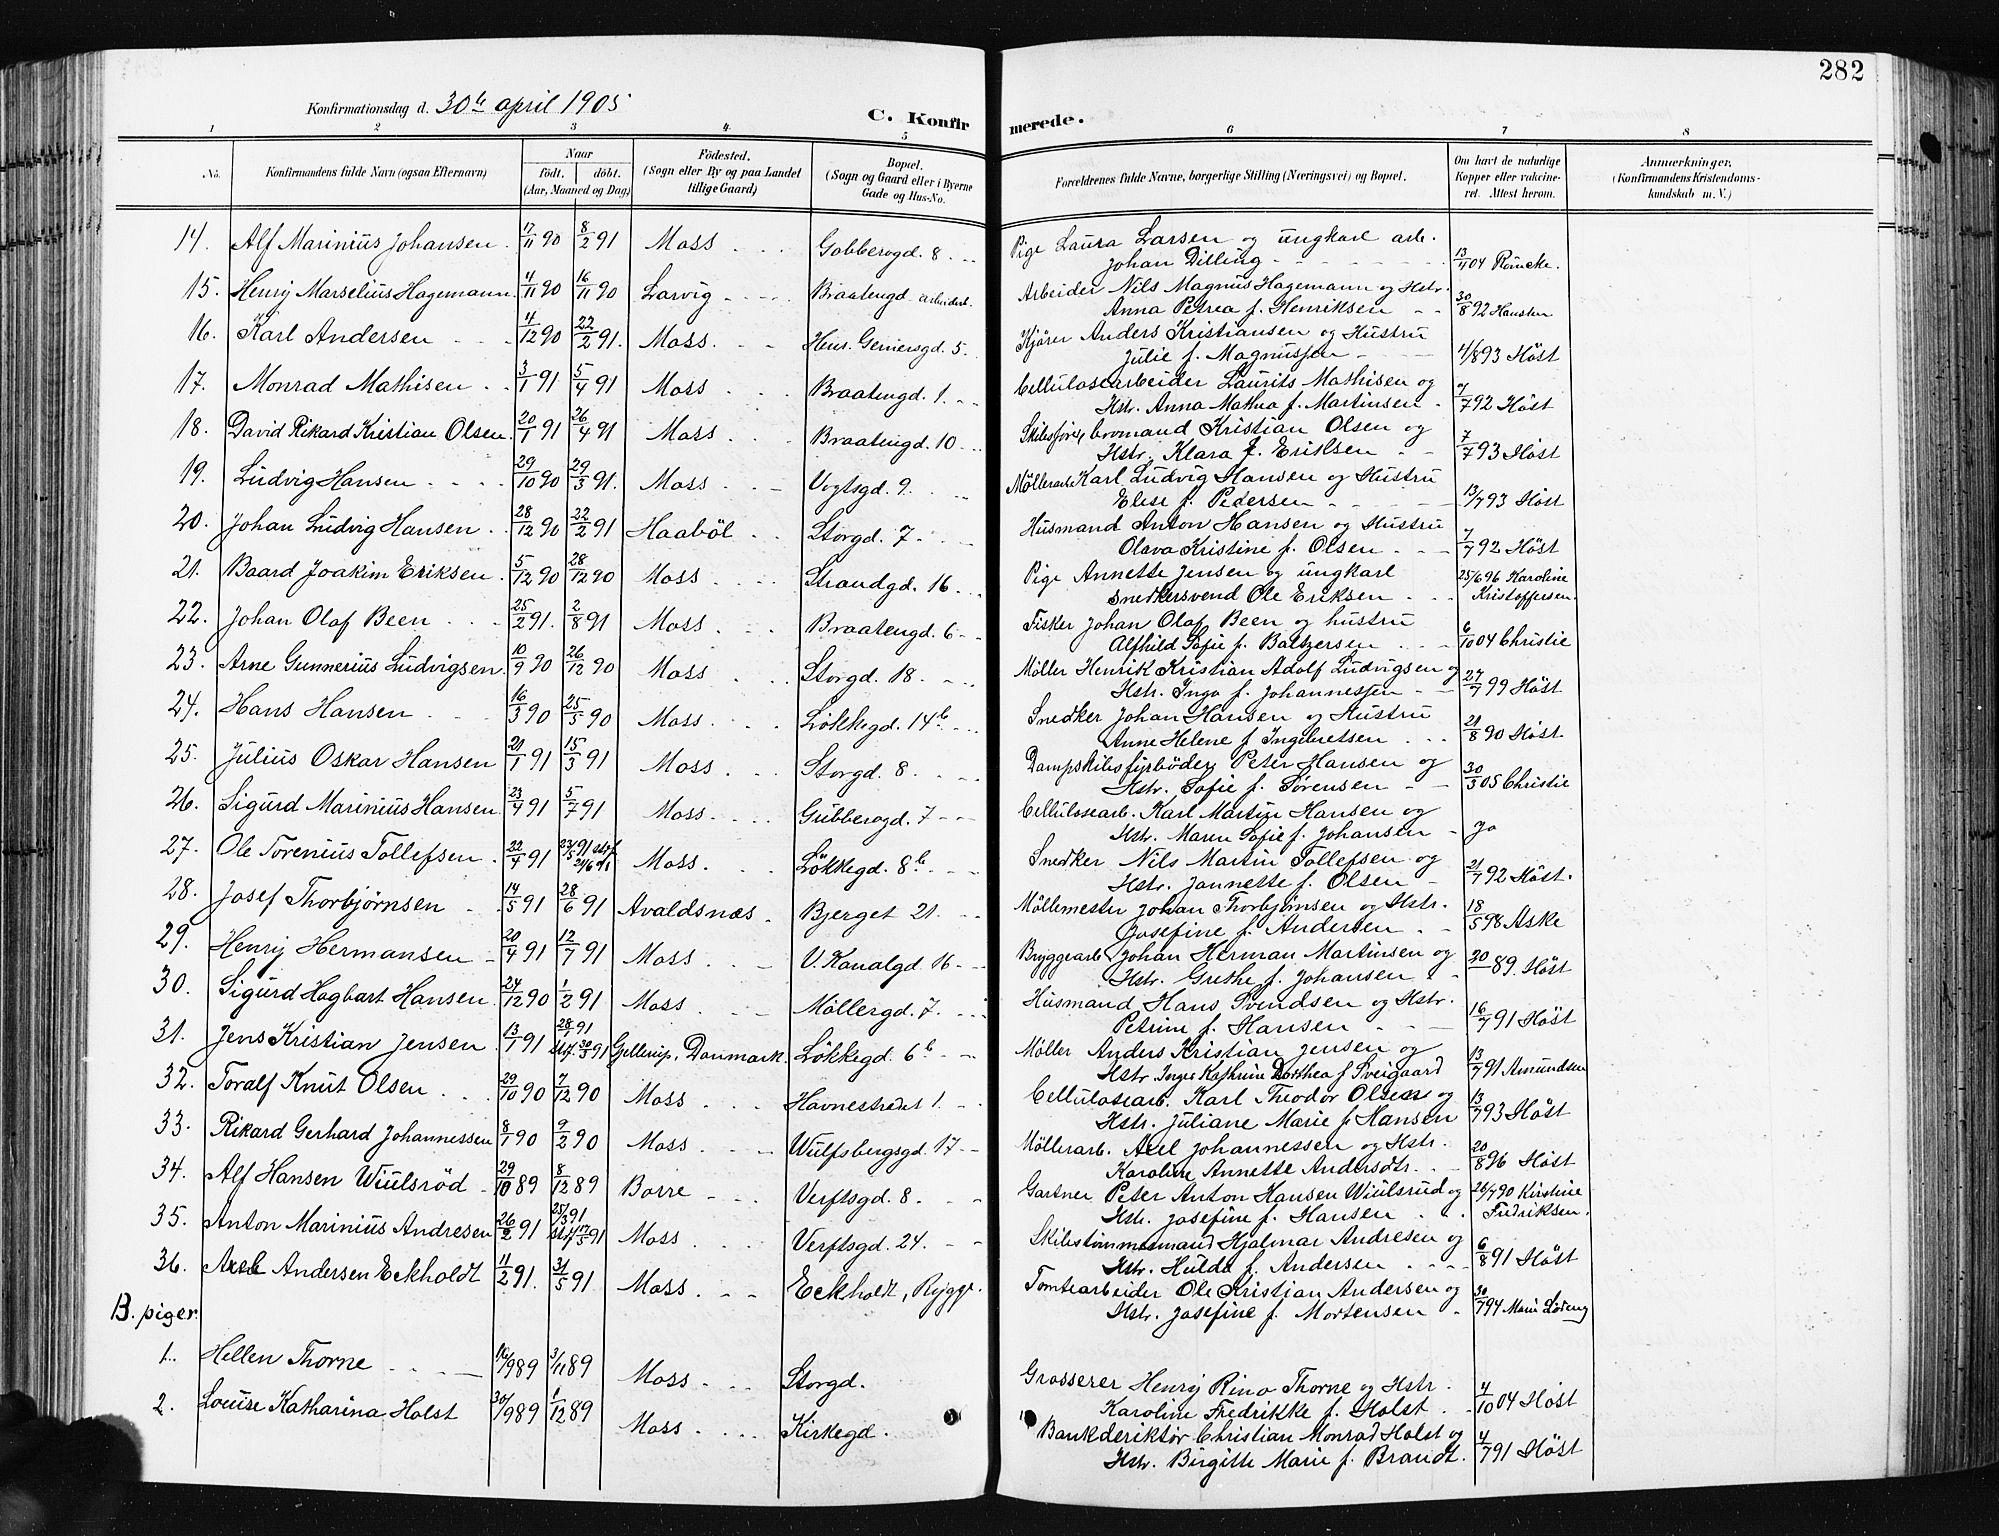 282
Konfirmationsdag d. 30te april 1905
C. Konfir merede.
1 2 3 4 5 6 7 8
No. Konfirmandens fulde Navn (ogsaa Efternavn) Naar født. døbt. (Aar, Maaned og Dag) Fødested. (Sogn eller By og paa Landet tillige Gaard) Bopæl. (Sogn og Gaard eller i Byerne Gade og Hus-No. Forældrenes fulde Navne, borgerlige Stilling (Næringsvei) og Bopæl. Om havt de naturlige Kopper eller vakcineret. Attest herom. Anmærkninger. (Konfirmandens Kristendomskundskab m. V.)
14. Alf Marinius Johansen 17/11 90 8/2 91 Moss Gobberogd. 8 Pige Laura Larsen og ungkarl arb.
Johan Dilling 13/4 04 Rømcke.
15. Henry Marselius Hagemann 4/11 90 16/11 90 Larvig Braatengd. arbeiderb. Arbeider Nils Magnus Hagemann og Hstr.
Anna Petrea f. Henriksen 30/8 92 Hansten
16. Karl Andersen 4/12 90 22/2 91. Moss Henr. Gernersgd. 5. Kjører Anders Kristiansen og Hustru
Julie f. Magnussen 4/8 93 Höst
17. Monrad Mathisen 3/1 91 5/4 91 Moss Braatengd. 1. Cellulosearbeider Laurits Mathisen og
Hstr. Anna Mathea f. Martinsen 7/7 92 Höst
18. David Rikard Kristian Olsen 20/1 91 26/4 91 Moss Braatengd. 10 Skibsfører Kristian Olsen og
Hstr. Klara f. Eriksen 7/7 93 Höst
19. Ludvig Hansen 29/10 90 29/3 91. Moss Vogtsgd. 9. Möllerarb. Karl Ludvig Hansen og Hustru
Elise f. Pedersen 13/7 93 Höst
20. Johan Ludvig Hansen 28/12 90 22/2 91 Haaböl Storgd. 7 Husmand Anton Hansen og Hustru
Olava Kristine f. Olsen 7/7 92 Höst
21. Baard Joakim Eriksen 5/12 90 28/12 90 Moss Strandgd. 16 Pige Annette Jensen og ungkarl
snedkersvend Ole Eriksen 25/6 96 Karoline Kristoffersen
22. Johan Olaf Been 25/2 91. 2/8 91 Moss Braatengd. 6 Fisker Johan Olaf Been og hustru
Alfhild Sofie f. Baltzersen 6/10 04 Christie
23. Arne Gunnerius Ludvigsen 10/9 90 26/12 90 Moss Storgd. 18 Möller Henrik Kristian Adolf Ludvigsen og
Hstr. Inga f. Johannessen 27/7 99 Höst
24. Hans Hansen 16/3 90 25/5 90 Moss Lökkegd. 14b Snedker Johan Hansen og Hustru
Anne Helene f. Ingebretsen 21/8 90 Höst.
25. Julius Oskar Hansen 21/1 91 15/3 91 Moss Storgd. 8 Dampskibsfyrböder Peter Hansen og
Hstr. Sofie f. Sørensen 30/3 05 Christie
26. Sigurd Marinius Hansen 23/4 91 5/7 91 Moss Gubberogd. 7 Cellulosearb. Karl Martin Hansen og
Hstr. Maren Sofie f. Johansen ja
27. Ole Torenius Tollefsen 22/4 91 Moss Lökkegd. 8b Snedker Nils Martin Tollefsen og
Hstr. Jannette f. Olsen 21/7 92 Höst.
28. Josef Thorbjørnsen 14/5 91 28/6 91 Avaldsnæs Bjerget 21. Möllemester Johan Thorbjørnsen og Hstr.
Josefine f. Andersen 18/5 98 Aske
29. Henry Hermansen 20/4 91 12/7 91 Moss V. Kanalgd. 16 Bryggearb. Johan Herman Martinsen og
Hstr. Grethe f. Johansen 20/ 89. Höst
30. Sigurd Hagbart Hansen 24/12 90 1/2 91 Moss Möllergd. 7. Husmand Hans Svendsen og Hstr.
Petrine f. Hansen 16/7 91 Höst
31. Jens Kristian Jensen 13/1 91 28/1 91 stf. 30/3 91 Gellerup, Danmark. Lökkegd. 6b Möller Anders Kristian Jensen og
Hstr. Inger Kathrine Dorthea f. Sveigaard 13/7 91 Amundsen
32. Toralf Knut Olsen 29/10 90 7/12 90 Moss Havnestredet 1. Cellulosearb. Karl Theodor Olsen og
Hstr. Juliane Marie f. Hansen 13/7 93 Höst
33. Rikard Gerhard Johannessen 8/1 90 9/2 90 Moss Wulfsbergsgd. 17 Möllerarb. Axel Johannessen og Hstr.
Karoline Annette Andersdtr. 20/8 96 Höst
34. Alf Hansen Wiulsröd 29/10 89 8/12 89 Borre Verftsgd. 8 Gartner Peter Anton Hansen Wiulsrud og
Hstr. Josefine f. Hansen 26/7 90 Kirstine Fredriksen.
35. Anton Marinius Andresen 26/2 91 25/3 91 stf. 17/5 91 Moss Verftsgd. 24. Skibstømmermand Hjalmar Andresen og
Hstr. Hulda f. Andersen 6/8 91 Höst
36. Axel Andersen Eckholdt 11/2 91. 31/5 91 Moss Eckholdt, Rygge. Tomtearbeider Ole Kristian Andersen og
Hstr. Josefine f. Mortensen 30/7 94 Marie Löveng
B. piger.
1. Hellen Thorne 16/9 89 3/11 89 Moss Storgd. Grosserer Henry Rino Thorne og Hstr.
Karoline Fredrikke f. Holst 4/10 04 Höst
2. Louise Katharina Holst 30/9 89 1/12 89 Moss Kirkegd. Bankderiktør Christian Monrad Holst og
Hstr. Birgitte Marie f. Brandt. 4/7 91 Höst